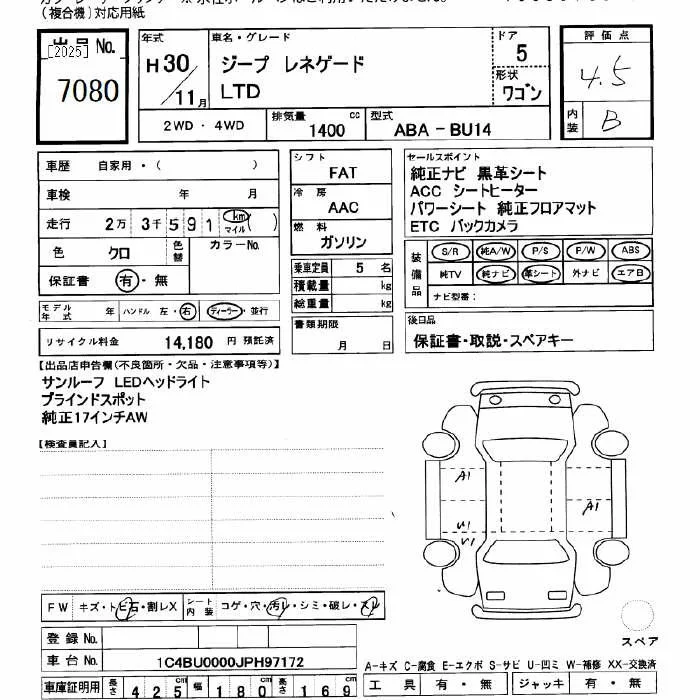 (複合機)対応用紙
出品 No.
[2025]
7080
年式
H30/11月
車名・グレード
ジープ レネゲード
LTD
ドア
5
形状
ワゴン
評価点
4.5
内装
B
2WD ・ 4WD
排気量
1400 cc
型式
ABA - BU14
車歴 自家用・( )
車検 年 月
走行 2万 3千 591 (km マイル)
色 クロ 色替
カラーNo.
保証書 有・無
モデル年式 年 ハンドル 左・右 ディーラー・並行
リサイクル料金 14,180 円 預託済
シフト
FAT
冷房
AAC
燃料
ガソリン
乗車定員 5 名
積載量 kg
総重量 kg
書類期限
月 日
セールスポイント
純正ナビ 黒革シート
ACC シートヒーター
パワーシート 純正フロアマット
ETC バックカメラ
装備品
S/R 純A/W P/S P/W ABS
純TV 純ナビ 革シート 外ナビ エアB
ナビ型番:
後日品
保証書・取説・スペアキー
【出品店申告欄(不良箇所・欠品・注意事項等)】
サンルーフ LEDヘッドライト
ブラインドスポット
純正17インチAW
【検査員記入】
A1
A1
U1
FW キズ・トビ石・割レX シート内装 コゲ・穴・汚レ・シミ・破レ・スレ
登録 No.
車台 No. 1C4BU0000JPH97172
車庫証明用 長さ 425 cm 幅 180 cm 高さ 169 cm
スペア
A-キズ C-腐食 E-エクボ S-サビ U-凹ミ W-補修 XX-交換済
工具 有・無 ジャッキ 有・無